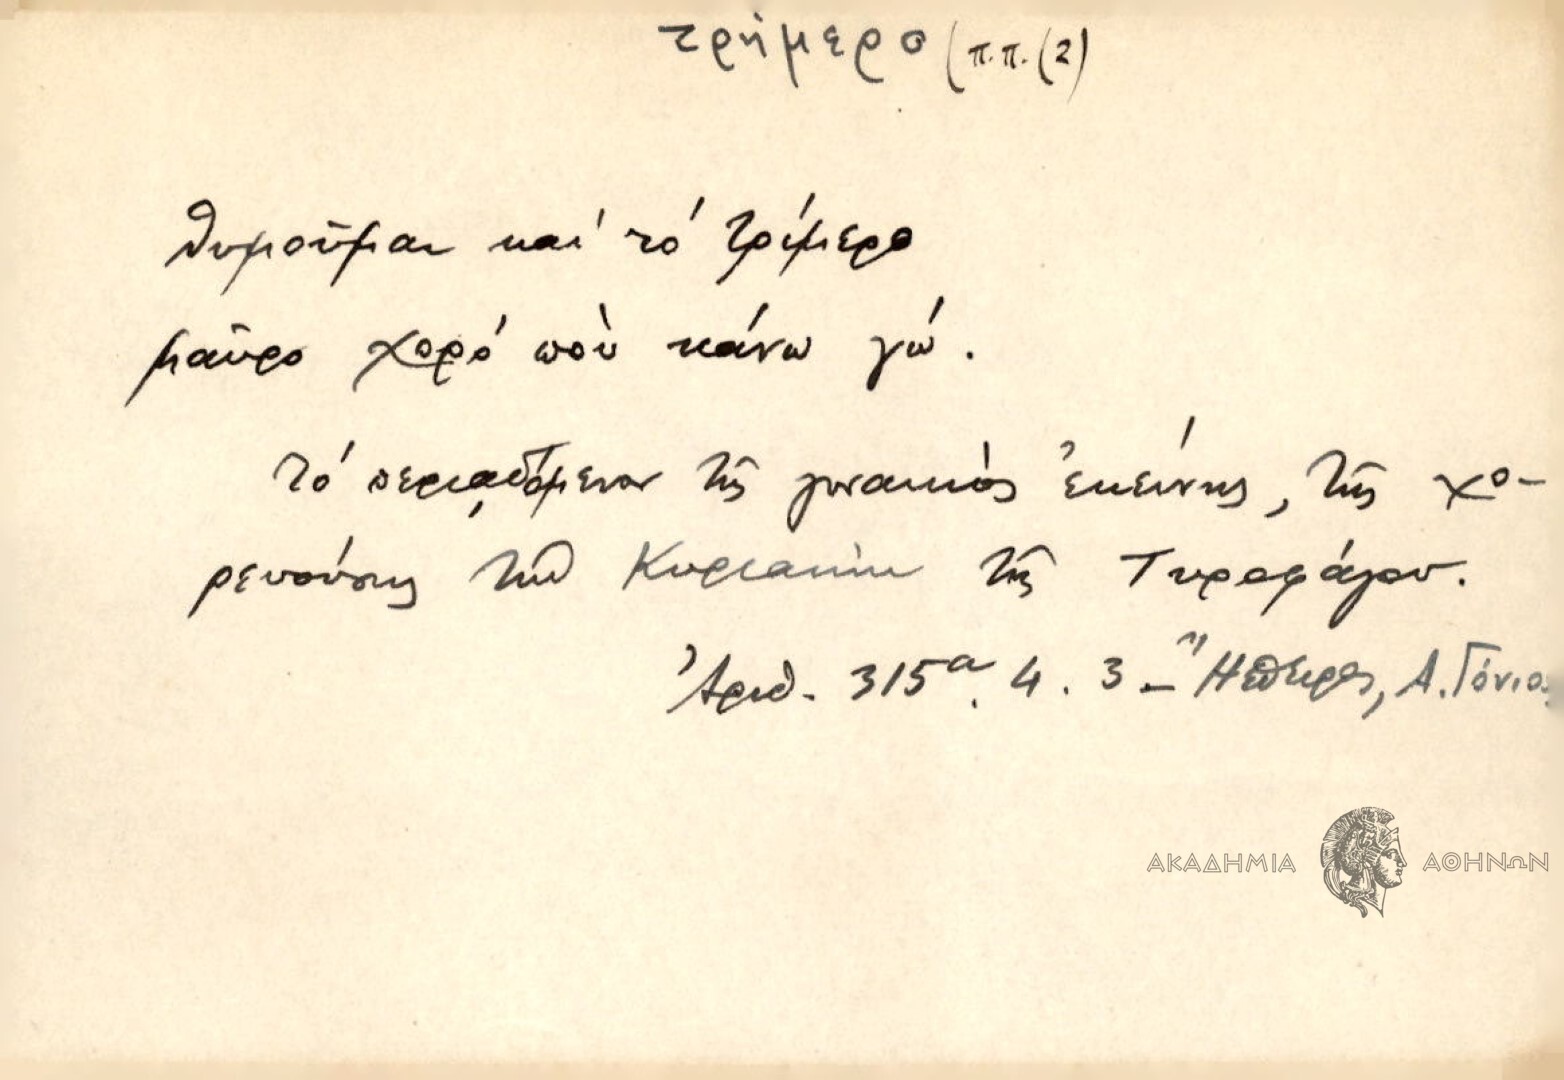 τρήμερο (π.π. (2)
θυμοῦμαι καί τό τρίμερο
μαῦρο χορό ποὺ κάνω γώ.
Τό περιᾳδόμενον τῆς γυναικὸς ἐκείνης, τῆς χο-
ρευούσης τὴν Κυριακὴν τῆς Τυροφάγου.
Ἀριθ. 315α. 4. 3 – Ἤπειρος, Α. Γόνιος
ΑΚΑΔΗΜΙΑ ΑΘΗΝΩΝ